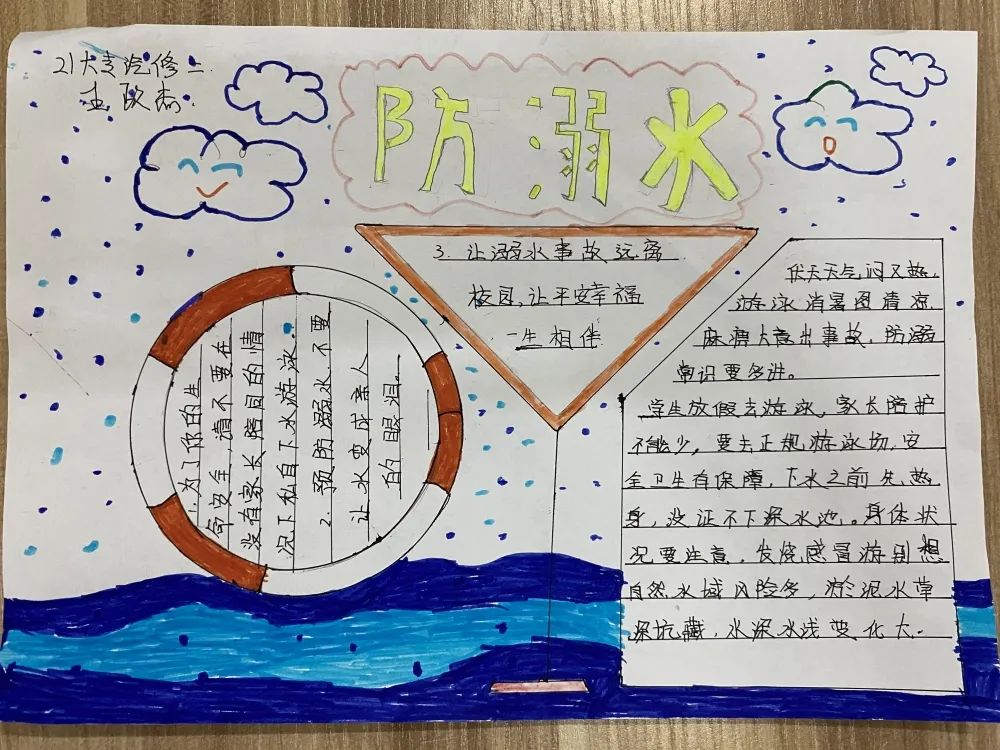 21大专汽修二
防溺水
1.为了你的的生
命安全,请不要在
没有家长陪同的情
况下私自下水游泳.
2.预防溺水.不要
让水变成亲人
的眼泪.
3.让溺水事故远离
校园,让平安幸福
一生相伴
伏天天气闷又热,
游泳消暑图清凉
麻痹大意出事故,防溺
常识要多讲。
学生放假去游泳,家长陪护
不能少,要去正规游泳场,安
全卫生有保障,下水之前先热
身,没证不下深水池。身体状
况要注意,发烧感冒游别想
自然水域风险多,淤泥水草
深坑藏,水深水浅变化大.